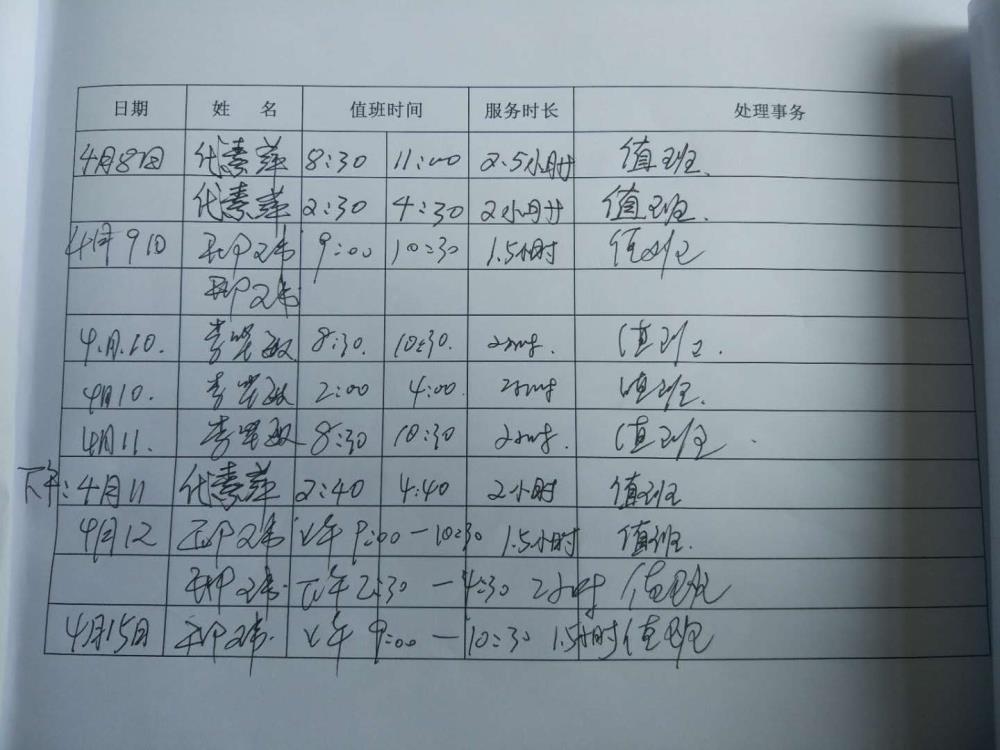 日期 姓 名 值班时间 服务时长 处理事务
4月8日 代素萍 8:30 11:00 2.5小时 值班.
代素萍 2:30 4:30 2小时 值班.
4月9日 9:00 10:30 1.5小时 值班
4.月.10. 李 敏 8:30. 10:30. 2小时. 值班.
4月10. 李 敏 2:00 4:00. 2小时 值班.
4月11. 李 敏 8:30 10:30 2小时. 值班.
下午: 4月11 代素萍 2:40 4:40 2小时 值班
4月12 上午 9:00 — 10:30 1.5小时 值班.
下午 2:30 — 4:30 2小时 值班
4月15日 上午 9:00 — 10:30 1.5小时 值班